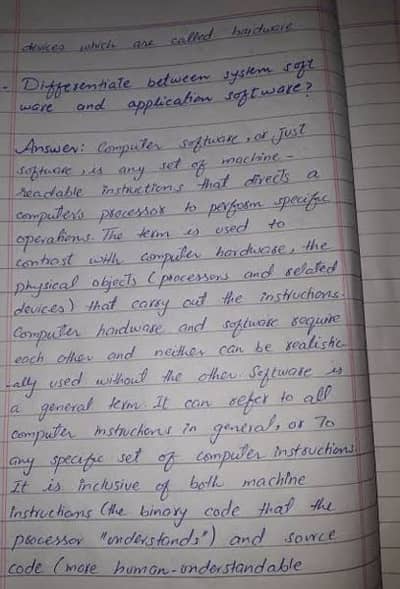 devices which are called hardware
- Differentiate between system soft
ware and application software?
Answer: Computer software, or just
software, is any set of machine-
readable instructions that directs a
computer's processor to perform specific
operations. The term is used to
contrast with computer hardware, the
physical objects (processors and related
devices) that carry out the instructions.
Computer hardware and software require
each other and neither can be realistic
-ally used without the other. Software is
a general term. It can refer to all
computer instructions in general, or To
any specific set of computer instructions.
It is inclusive of both machine
instructions (the binary code that the
processor "understands") and source
code (more human-understandable